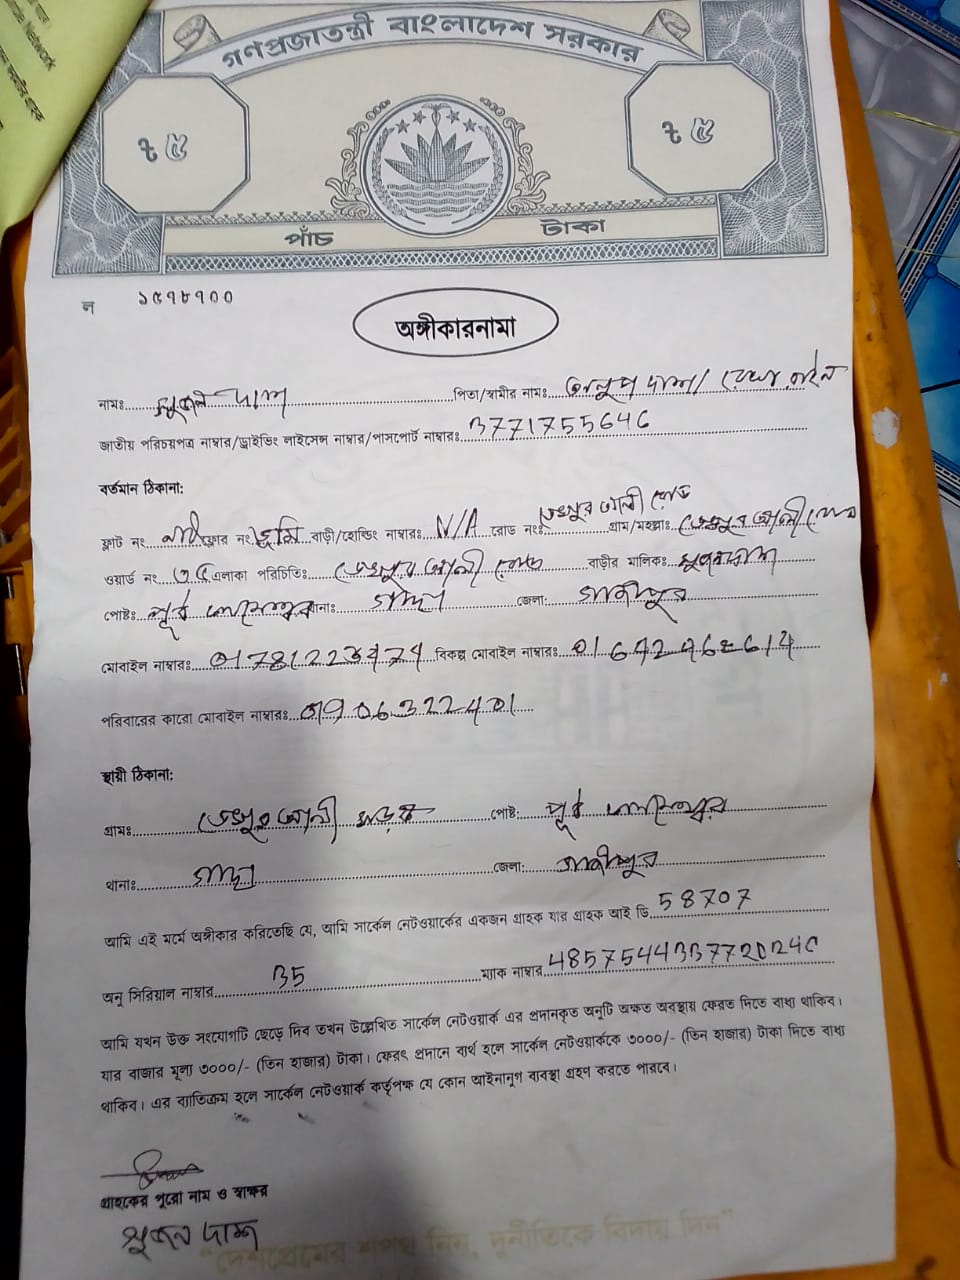 গণপ্রজাতন্ত্রী বাংলাদেশ সরকার
৳ ৫ ৳ ৫
পাঁচ টাকা
ল ১৫৭৮৭০০
অঙ্গীকারনামা
নামঃ সুজন দাস পিতা/স্বামীর নামঃ অনুপ দাস/
জাতীয় পরিচয়পত্র নাম্বার/ড্রাইভিং লাইসেন্স নাম্বার/পাসপোর্ট নাম্বারঃ 3771755646
বর্তমান ঠিকানা:
ফ্লাট নং ফ্লোর নং ভূমি বাড়ী/হোল্ডিং নাম্বারঃ N/A রোড নংঃ গ্রাম/মহল্লাঃ
ওয়ার্ড নং ৩৫ এলাকা পরিচিতিঃ বাড়ীর মালিকঃ
পোষ্টঃ পূর্ব থানাঃ গাছা জেলা: গাজীপুর
মোবাইল নাম্বারঃ বিকল্প মোবাইল নাম্বারঃ
পরিবারের কারো মোবাইল নাম্বারঃ 01906322401
স্থায়ী ঠিকানা:
গ্রামঃ পোষ্ট: পূর্ব
থানাঃ গাছা জেলা: গাজীপুর
আমি এই মর্মে অঙ্গীকার করিতেছি যে, আমি সার্কেল নেটওয়ার্কের একজন গ্রাহক যার গ্রাহক আই ডি 58707
অনু সিরিয়াল নাম্বার 35 ম্যাক নাম্বার
আমি যখন উক্ত সংযোগটি ছেড়ে দিব তখন উল্লেখিত সার্কেল নেটওয়ার্ক এর প্রদানকৃত অনুটি অক্ষত অবস্থায় ফেরত দিতে বাধ্য থাকিব।
যার বাজার মূল্য ৩০০০/- (তিন হাজার) টাকা। ফেরৎ প্রদানে ব্যর্থ হলে সার্কেল নেটওয়ার্ককে ৩০০০/- (তিন হাজার) টাকা দিতে বাধ্য
থাকিব। এর ব্যাতিক্রম হলে সার্কেল নেটওয়ার্ক কর্তৃপক্ষ যে কোন আইনানুগ ব্যবস্থা গ্রহণ করতে পারবে।
গ্রাহকের পুরো নাম ও স্বাক্ষর
সুজন দাস
"দেশপ্রেমের শপথ নিন, দুর্নীতিকে বিদায় দিন"